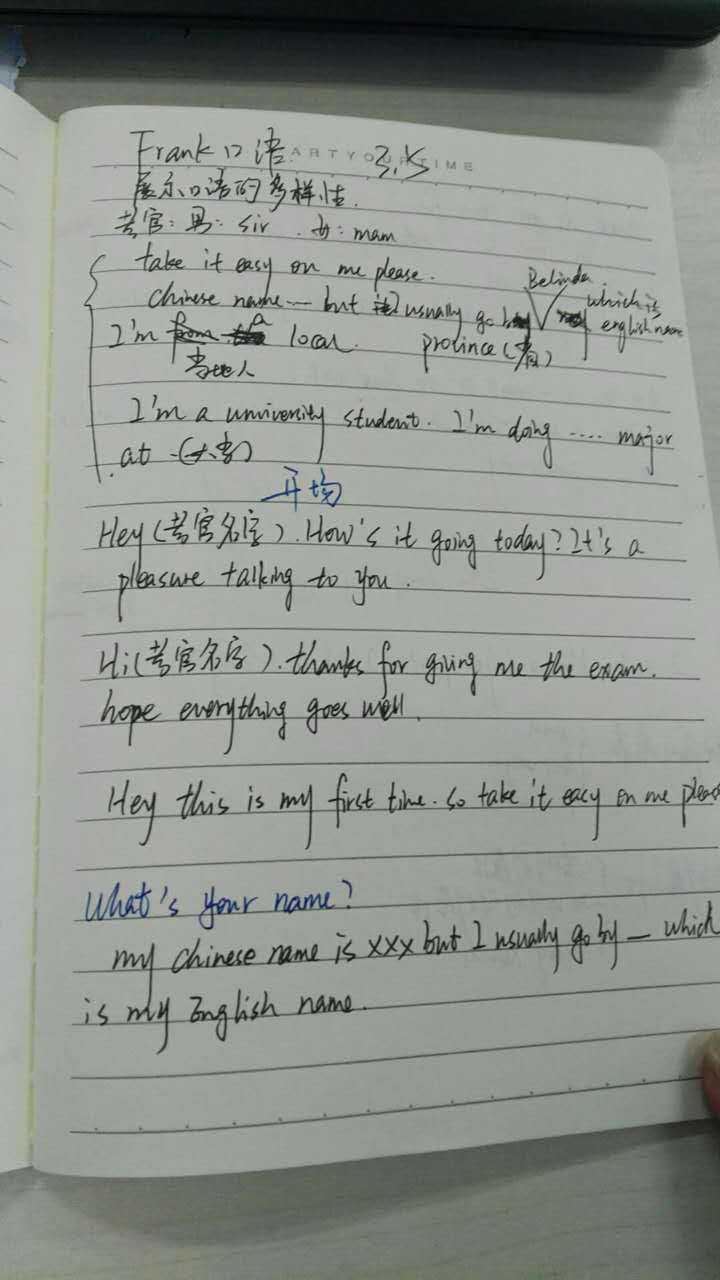 Frank口语 3.5
ARTYOURTIME
展示口语的多样性.
考官: 男: sir . 女: mam
take it easy on me please.
Belinda
chinese name — but I usually go by which is english name
I'm a local. province (省)
当地人
I'm a university student. I'm doing .... major
at (大学)
平均
Hey (考官名字). How's it going today? It's a
pleasure talking to you.
Hi (考官名字). thanks for giving me the exam.
hope everything goes well.
Hey this is my first time. so take it easy on me pleas
What's your name?
my chinese name is xxx but I usually go by — which
is my English name.